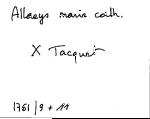 Allaeys marie cath.
X Tacquet
1761 / 9 + 11